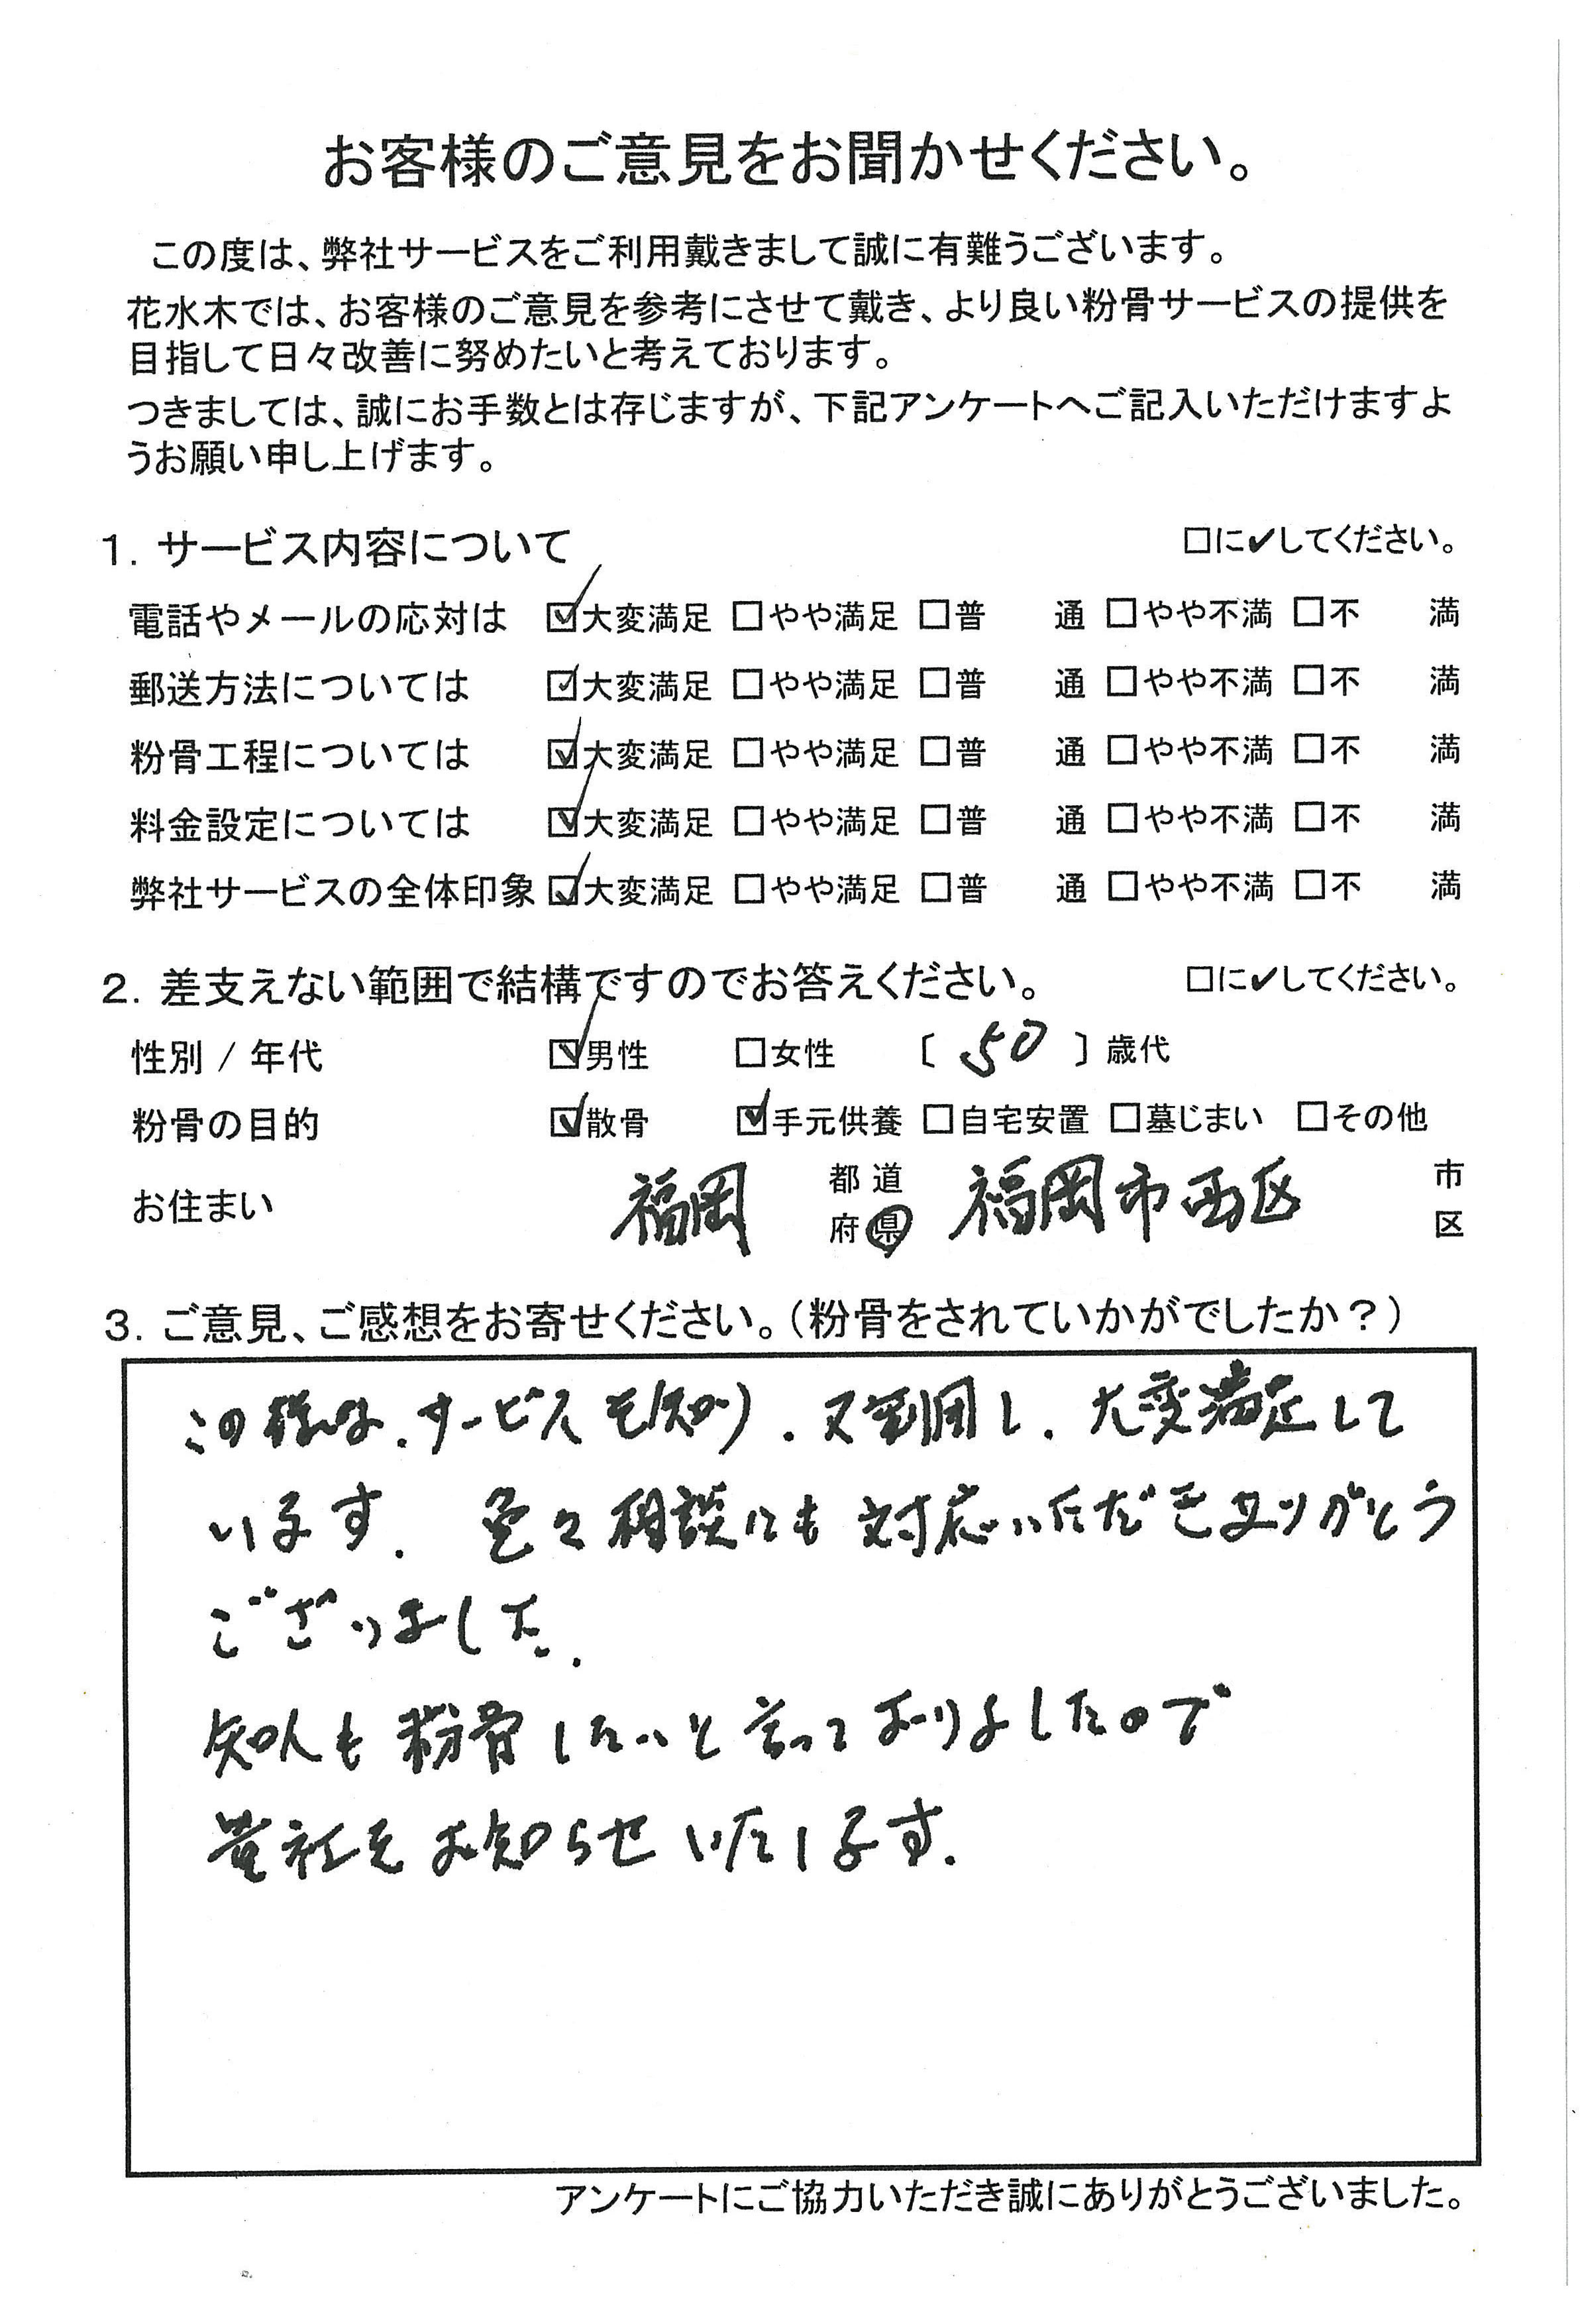 お客様のご意見をお聞かせください。
この度は、弊社サービスをご利用戴きまして誠に有難うございます。
花水木では、お客様のご意見を参考にさせて戴き、より良い粉骨サービスの提供を
目指して日々改善に努めたいと考えております。
つきましては、誠にお手数とは存じますが、下記アンケートへご記入いただけますよ
うお願い申し上げます。
1. サービス内容について □に✔してください。
電話やメールの応対は ☑大変満足 □やや満足 □普 通 □やや不満 □不 満
郵送方法については ☑大変満足 □やや満足 □普 通 □やや不満 □不 満
粉骨工程については ☑大変満足 □やや満足 □普 通 □やや不満 □不 満
料金設定については ☑大変満足 □やや満足 □普 通 □やや不満 □不 満
弊社サービスの全体印象 ☑大変満足 □やや満足 □普 通 □やや不満 □不 満
2. 差支えない範囲で結構ですのでお答えください。 □に✔してください。
性別 / 年代 ☑男性 □女性 〔 50 〕歳代
粉骨の目的 ☑散骨 ☑手元供養 □自宅安置 □墓じまい □その他
お住まい 福岡 都道府県 福岡市西区 市区
3. ご意見、ご感想をお寄せください。（粉骨をされていかがでしたか？）
この様な、サービスを知り、又利用し、大変満足して
います。色々相談にも対応いただきありがとう
ございました。
知人も粉骨したいと言っておりましたので
貴社をお知らせいたします。
アンケートにご協力いただき誠にありがとうございました。